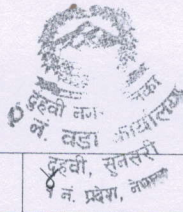 दुहवी नग...का
नं. वडा कार्यालय
दुहवी, सुनसरी
नं. प्रदेश, नेपाल